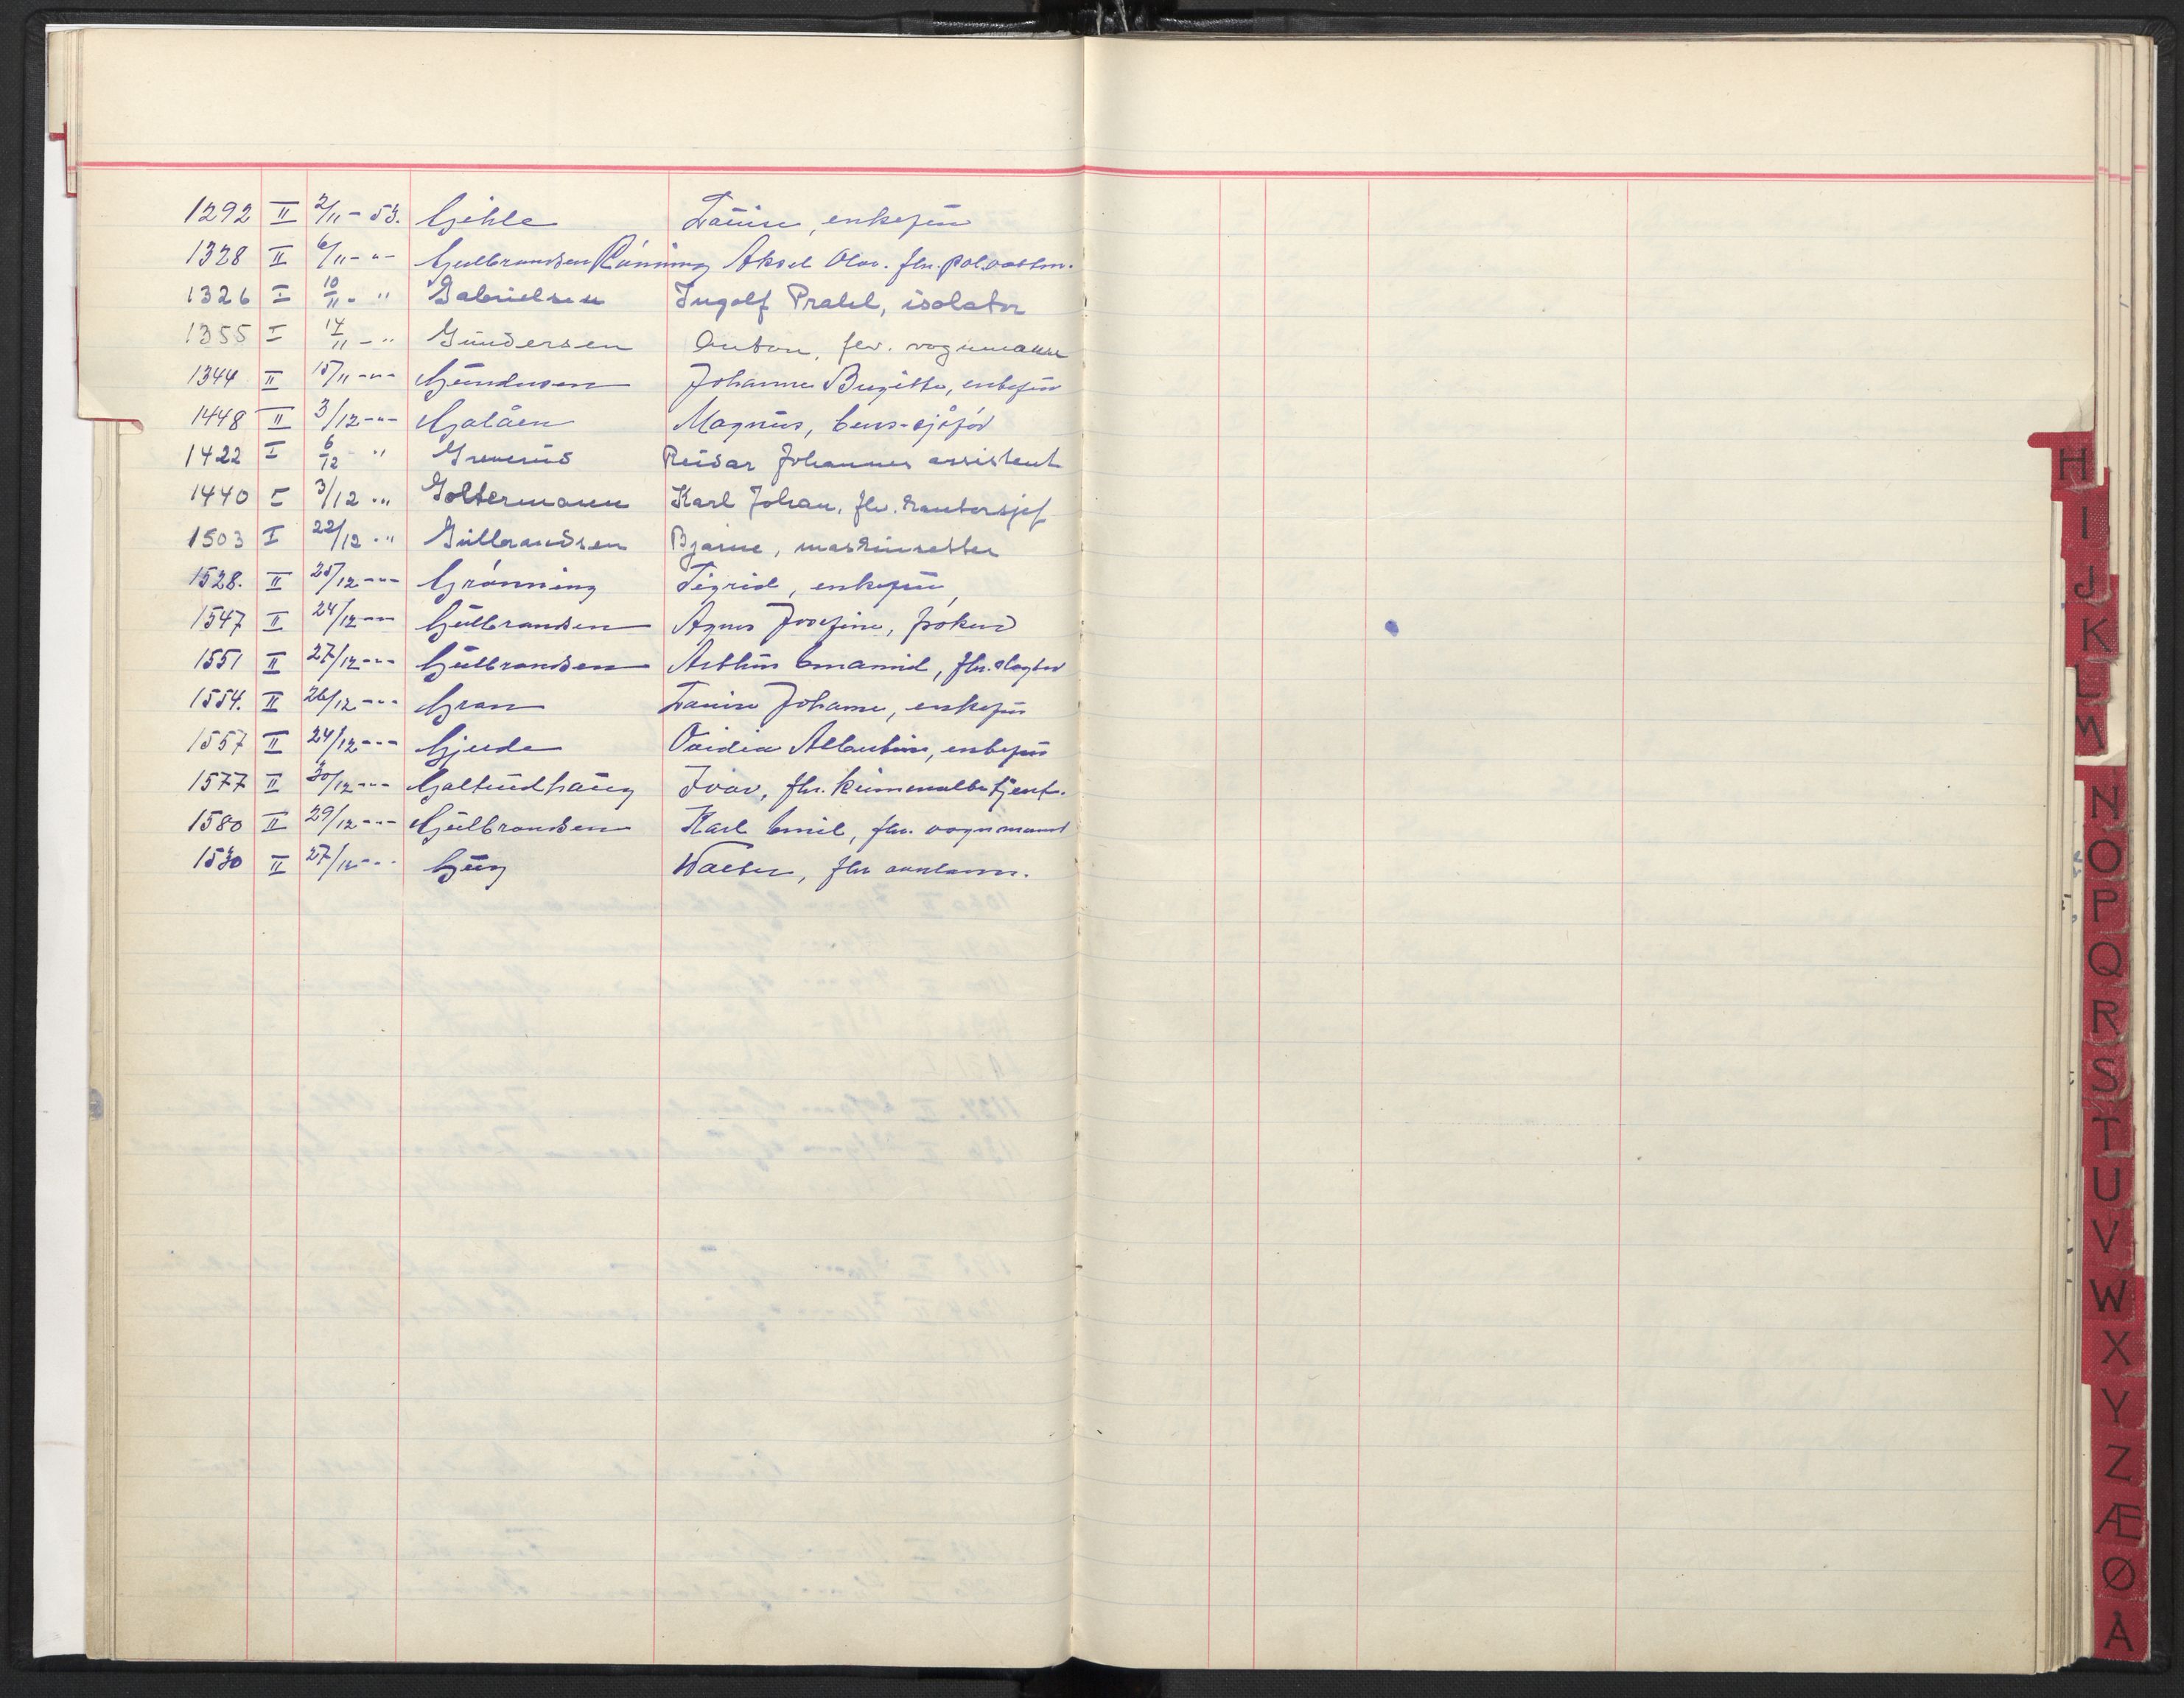 1292 II 2/11 - 53. Gihle Louise, enkefru
1328 II 6/11 - " - Gulbrandsen Rønning Aksel Olav. fhv. pol.
1326 I 10/11 - " Gabrielsen Ingolf Prahl, isolatør
1355 I 14/11 - " Gundersen Anton, fhv. vognmann
1344 II 15/11 - " - Gundersen Johanne Birgitte, enkefru
1448 II 3/12 - " - Galåen Magnus,
1422 I 6/12 - " Grenerud Reidar Johannes assistent
1440 I 3/12 - " Goltermann Karl Johan, fhv. kontorsjef
1503 I 22/12 - " Gulbrandsen Bjarne, maskinsetter
1528. II 25/12 - " - Grønning Sigrid, enkefru
1547 II 24/12 - " - Gulbrandsen Agnes Josefine, frøken
1551 II 27/12 - " - Gulbrandsen Arthur fhv. slagter
1554. II 26/12 - " - Gran Louise Johanne, enkefru
1557 II 24/12 - " - Gjerde Ovidia Albertine, enkefru
1577 II 30/12 - " - Galtundhaug Ivar, fhv. kriminalbetjent.
1580 II 29/12 - " - Gulbrandsen Karl Emil, fhv. vognmann
1530 II 27/12 - " - Gurg fhv
H
I
J
K
L
M
N
O
P
Q
R
S
T
U
V
W
X
Y
Z
Æ
Ø
Å